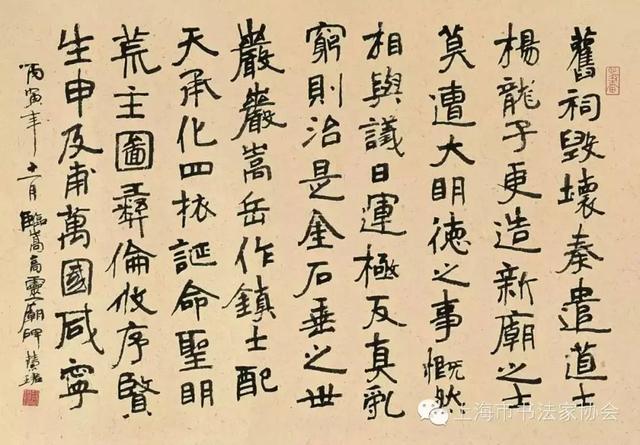 舊祠毀壞奏遣道士
楊龍子更造新廟之士
莫遭大明徳之事慨然
相與議曰運極反真亂
窮則治是金石垂之世
巖巖嵩岳作鎮土配
天承化四袜誕命聖明
荒主圖彛倫攸序賢
生申及甫萬國咸寧
丙寅年十一月臨嵩高靈廟碑
上海市书法家协会